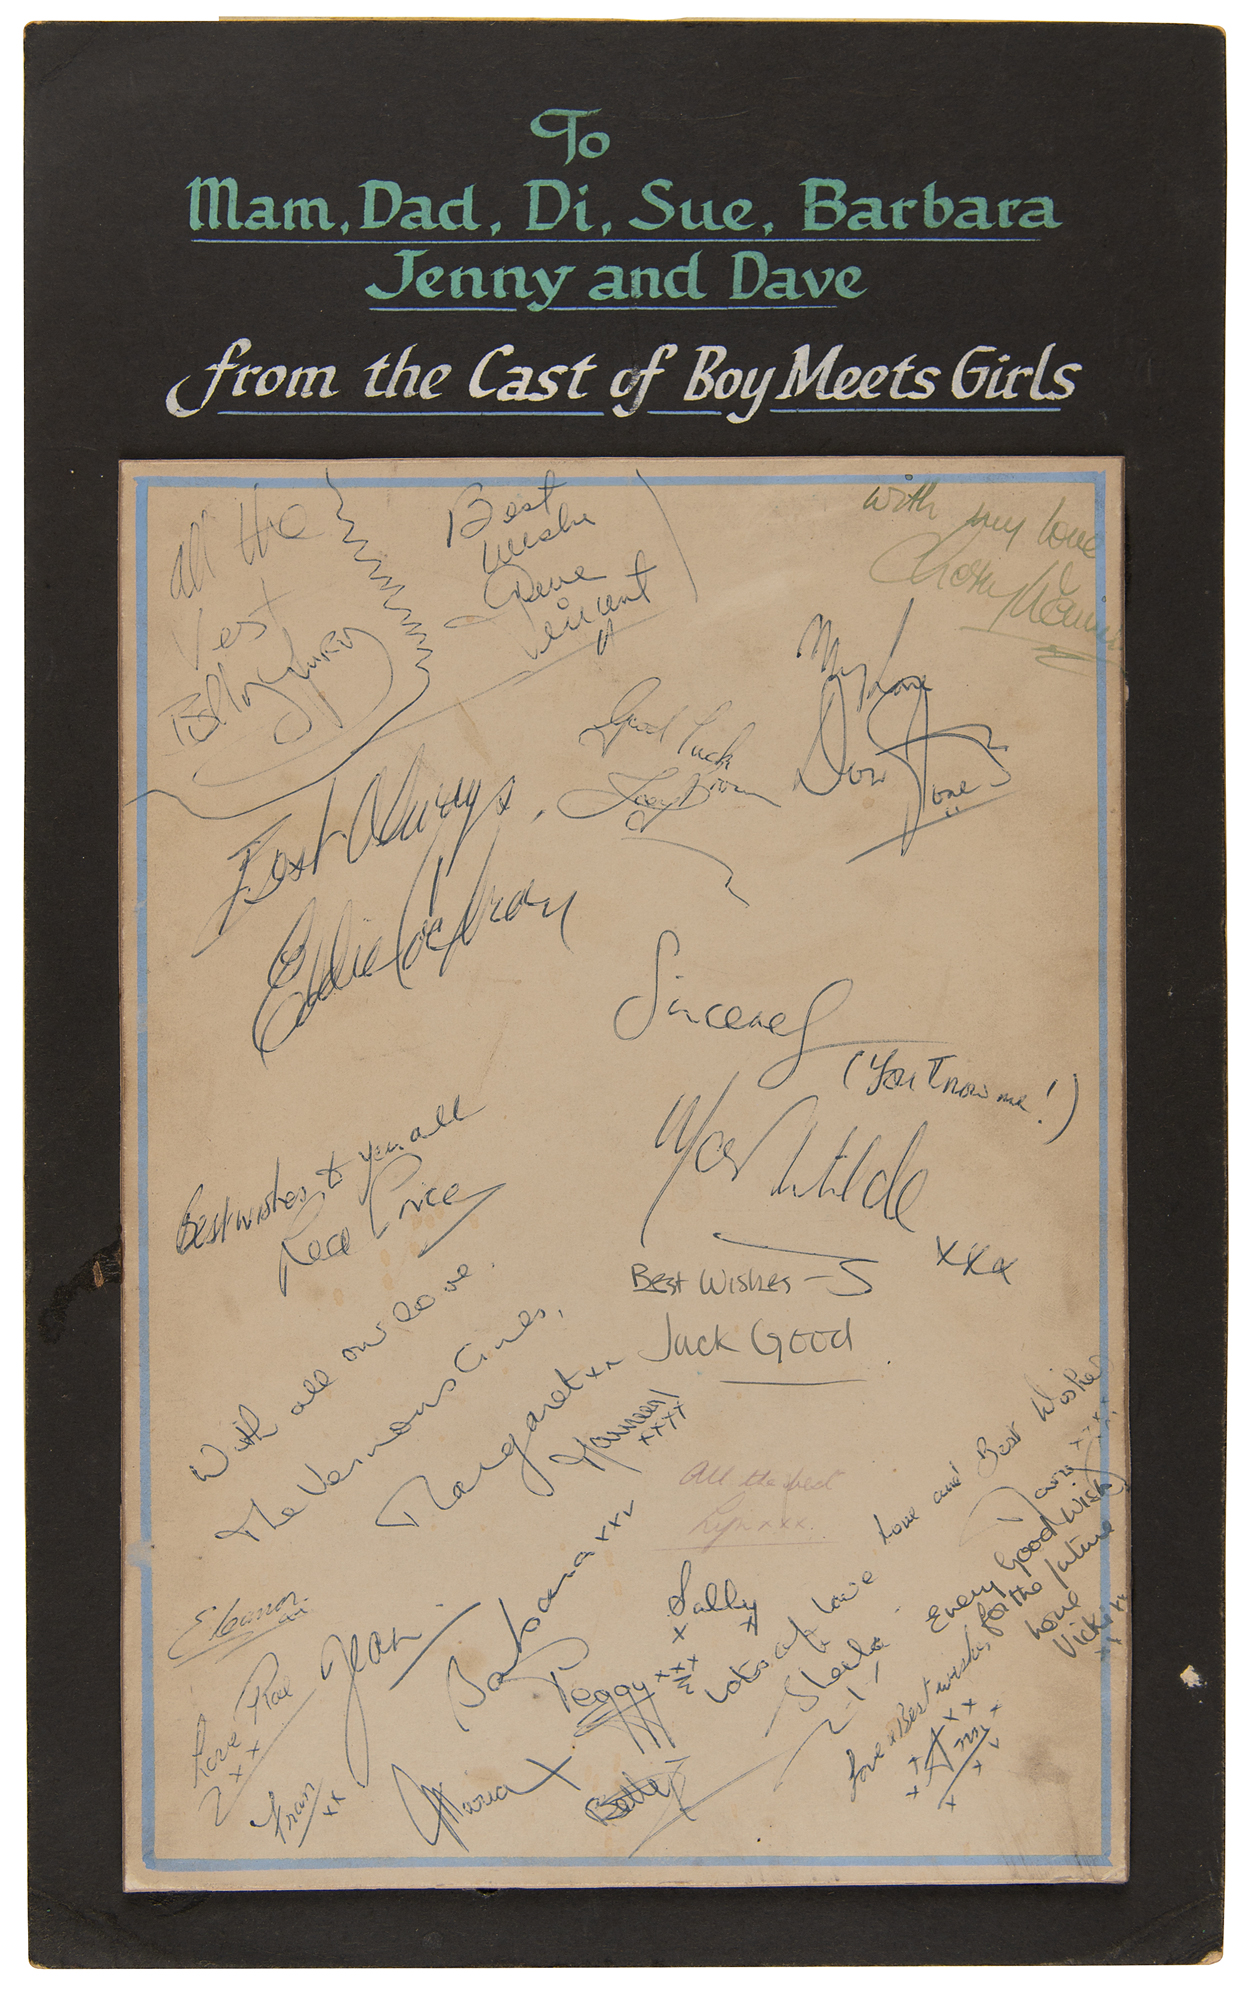 To
Mam, Dad, Di, Sue, Barbara
Jenny and Dave
from the Cast of Boy Meets Girls
all the
Vest
Billy Fury
Best
Wishes
Gene
Vincent
with my love
My Love
Don
Jones
Good Luck
Joey Brown
Best Always,
Eddie Cochran
Sincerely
(You know me!)
Marty Wilde
xxx
Best wishes to you all
Red Price
Best Wishes -
Jack Good
With all our love.
The Vernons Girls,
Margaret xx
Maureen
xxxx
All the best
Lyn xxx.
Love and Best Wishes
xxxx
Barbara xxx
Sally
x x
Eleanor
Jean
Peggy xxx
Lots of love
Sheila
Every Good Wish
for the future
love
Vicki
Love Rae
xx
Fran
xx
Maria x
Betty
Love & Best wishes,
Ann